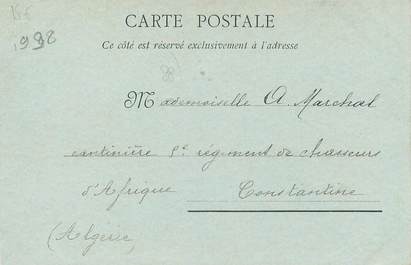 1982
CARTE POSTALE
Ce côté est réservé exclusivement à l'adresse
Mademoiselle A. Marchal
cantinière 5e régiment de chasseurs
d'Afrique Constantine
(Algérie)